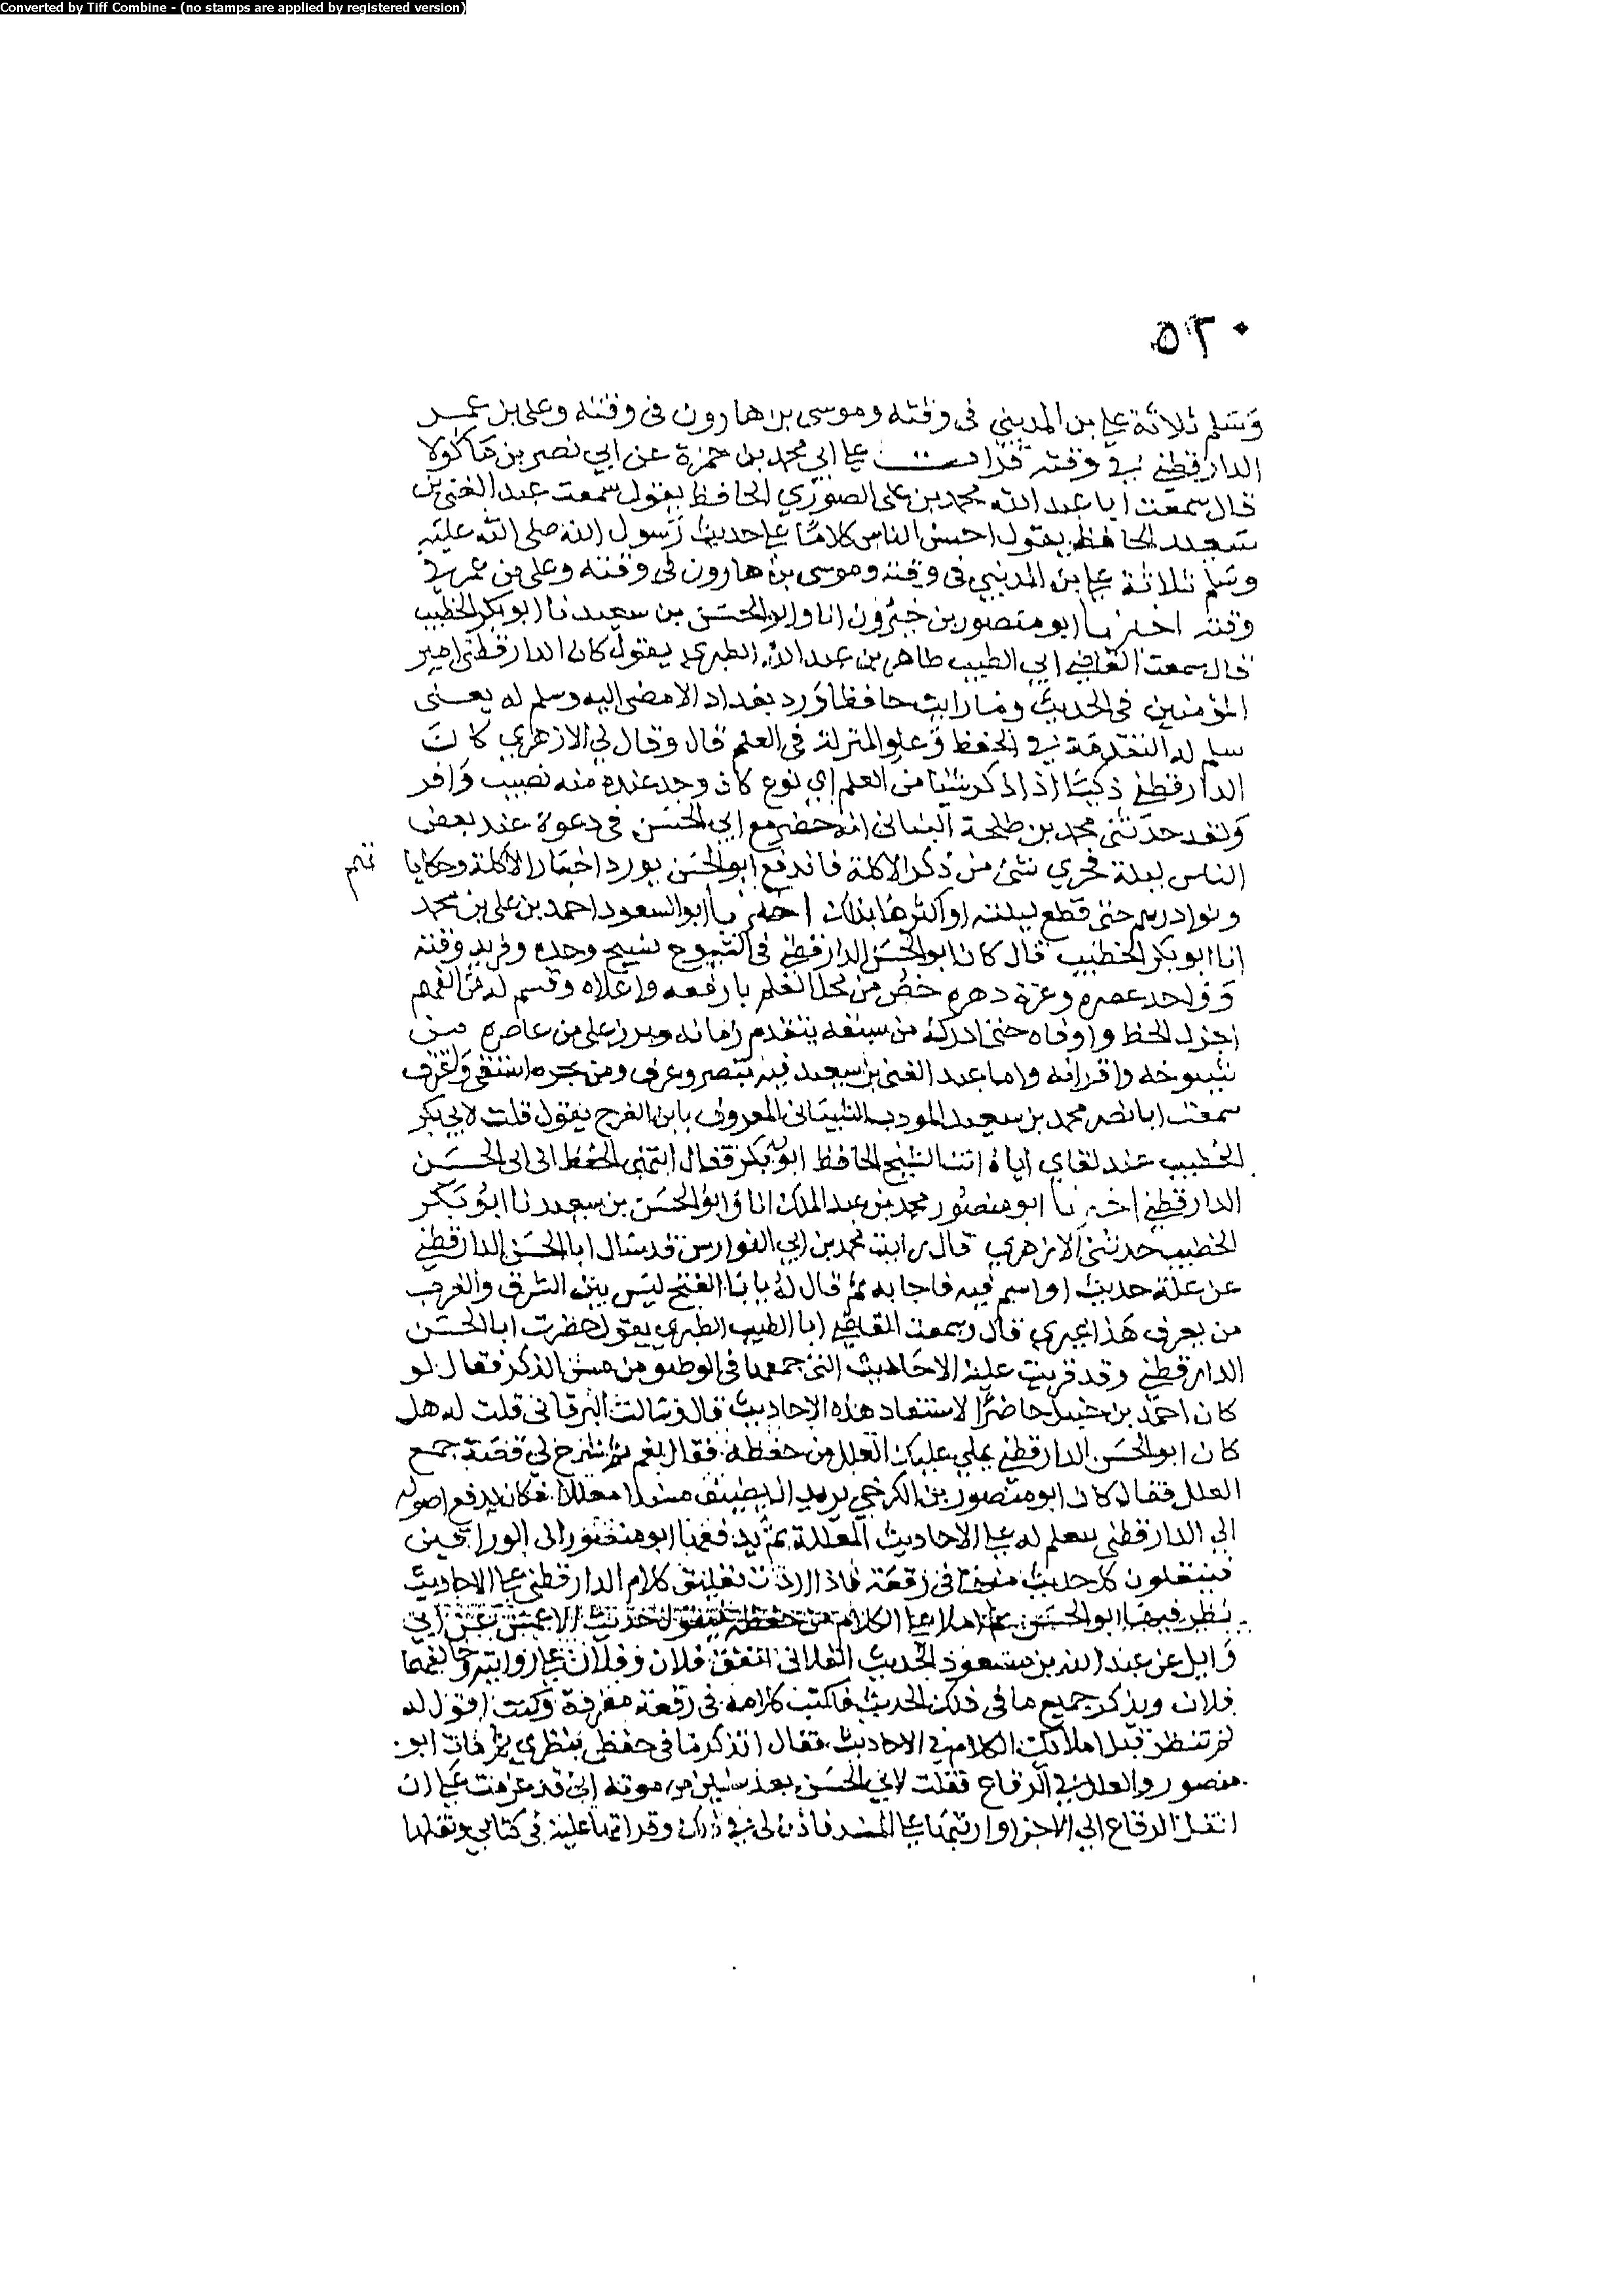 Converted by Tiff Combine - (no stamps are applied by registered version)
٥٢٠
وسلم ثلاثة علي بن المديني في وقته وموسى بن هارون في وقته وعلى بن عمر
الدارقطني في وقته قرات على ابي محمد بن حمزة عن ابي نصر بن ماكولا
قال سمعت ابا عبد الله محمد بن على الصوري الحافظ يقول سمعت عبد الغنى بن
سعيد الحافظ يقول احسن الناس كلاما على حديث رسول الله صلى الله عليه
وسلم ثلاثة علي بن المديني في وقته وموسى بن هارون في وقته وعلى بن عمر في
وقته اخبرنا ابو منصور بن خيرون انا وابو الحسن بن سعيد نا ابو بكر الخطيب
قال سمعت القاضي ابي الطيب طاهر بن عبد الله الطبري يقول كان الدارقطنى امير
المؤمنين في الحديث وما رايت حافظا ورد بغداد الا مضى اليه وسلم له يعنى
سلم له التقدمة في الحفظ وعلو المنزلة في العلم قال وقال لي الازهري كان
الدارقطني ذكيا اذا ذكر شيا من العلم اي نوع كان وجد عنده منه نصيب وافر
ولقد حدثني محمد بن طلحة النعالى انه حضر مع ابي الحسن في دعوة عند بعض
الناس ليلة فجري شئ من ذكر الاكلة فاندفع ابو الحسن يورد اخبار الاكلة وحكايا تهم
ونوادرهم حتى قطع ليلته او اكثرها بذلك اخبرنا ابو السعود احمد بن على بن محمد
انا ابو بكر الخطيب قال كان ابو الحسن الدارقطني في الشيوخ نسيج وحده وفريد وقته
وواحد عصره وغرة دهره خص من محل العلم بارفعه واعلاه وقسم له من الفهم
اجزل الحظ واوفاه حتى ادرك من سبقه بتقدم زمانه وبرز على من عاصره من
شيوخه واقرانه واما عبد الغنى بن سعيد فبه تبصر وعرف ومن بحره استقى واغترف
سمعت ابا نصر محمد بن سعيد المودب الشيبانى المعروف بابن الفرج يقول قلت لابي بكر
الخطيب عند لقاي اياه انت الشيخ الحافظ ابو بكر فقال انتهى الحفظ الى ابى الحسن
الدارقطني اخبرنا ابو منصور محمد بن عبد الملك انا وابو الحسن بن سعيد نا ابو بكر
الخطيب حدثني الازهري قال رايت محمد بن ابي الفوارس قد سال ابا الحسن الدارقطني
عن علة حديث او اسم فيه فاجابه ثم قال له يا با الفتح ليس بين الشرق والغرب
من يعرف هذا غيري قال وسمعت القاضي ابا الطيب الطبري يقول حضرت ابا الحسن
الدارقطني وقد قريت عليه الاحاديث التي جمعها في الوضو من مس الذكر فقال لو
كان احمد بن حنبل حاضرا لاستفاد هذه الاحاديث قال وسالت البرقانى قلت له هل
كان ابو الحسن الدارقطني يملي عليك العلل من حفظه فقال نعم ثم شرح لي قصة جمع
العلل فقال كان ابو منصور بن الكرخي يريد ان يصنف مسندا معللا فكان يدفع اصوله
الي الدارقطني يعلم له على الاحاديث المعللة ثم يدفعها ابو منصور الى الوراقين
فينقلون كل حديث منها في رقعة فاذا اردت تعليق كلام الدارقطني على الاحاديث
نظر فيها ابو الحسن ثم املا على الكلام من حفظه فيقول حديث الاعمش عن ابي
وايل عن عبد الله بن مسعود الحديث الفلانى اتفق فلان وفلان على روايته وخالفهما
فلان ويذكر جميع ما في ذلك الحديث فاكتب كلامه في رقعة مفردة وكنت اقول له
لم تنظر قبل املائك الكلام في الاحاديث فقال اتذكر ما في حفظي بنظري ثم مات ابو
منصور والعلل في الرقاع فقلت لابي الحسن بعد سنين من موته اني قد عزمت على ان
انقل الرقاع الي الاجزا وارتبها على المسند فاذن لي في ذلك وقراتها عليه في كتابي ونقلها